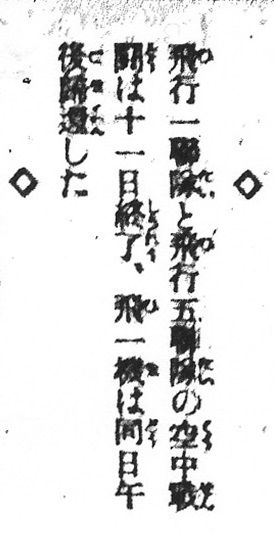 飛行一聯隊と飛行五聯隊の空中戰
鬪は十一日終了、飛一機は同日午
後歸還した